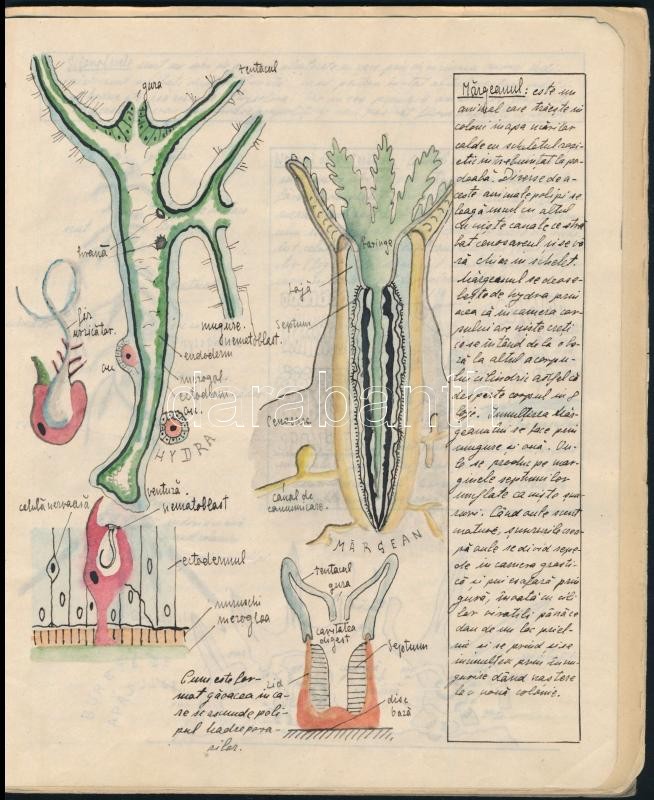 tentacul
gura
hrană
fir
urzicător.
mugure.
nematoblast.
endoderm
ou
mezogol.
ectoderm
ou.
HYDRA
ventuză
nematoblast
celulă nervoasă
ectodermul
mușchi
mezogloa
faringe
Lojă
Septum
Cenosarc
canal de
comunicare.
MĂRGEAN
tentacul
gura
cavitatea
digest
Septum
zid
disc
bază
Cum este for-
mat găoacea în ca-
re se ascunde poli-
pul madrepora-
rilor.
Mărgeanul: este un
animal care trăește în
colonii în apa mărilor
calde cu scheletul roși
etic întrebuințat la po-
doabă. Diverse de a-
ceste animale polipi se
leagă unul cu altul
cu niște canale ce stră
bat cenosarcul și
chiar schelet.
Mărgeanul se deose-
bește de hydra prin
aceea că în camera cor-
pului are niște creți
ce se întind de la o ba-
ză la altul a corpu-
lui cilindric astfel că
desparte corpul în 8
loje. Înmulțirea măr-
geanului se face prin
mugure și ouă. Ou-
le se produc pe mar-
ginele septurilor
umflate ca niște șnu-
ruri. Când oule sunt
mature, șnururile cra-
pă oule se divid repe-
de în camera gastri-
că și pui es afară prin
gură, înoată cu cili-
lor vibratili până ce
dau de un loc priel-
nic și se prind și se
înmulțesc prin înmu-
gurire dând naștere
la o nouă colonie.
darabanth